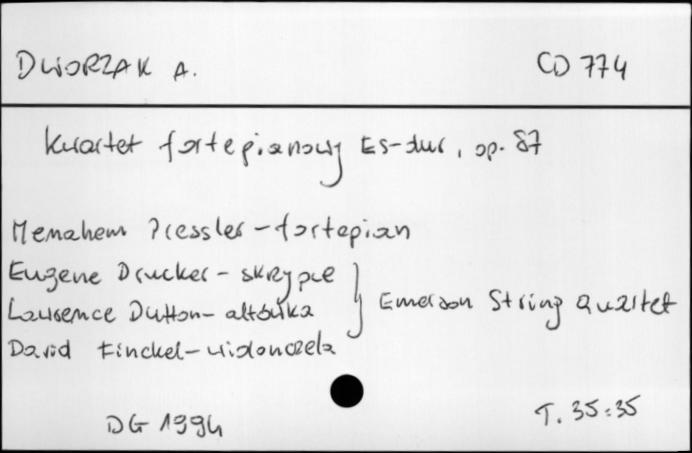 DWORZAK A. CD 774
Kwartet fortepianowy Es-dur, op. 87
Menahem Pressler - fortepian
Eugene Drucker - skrzypce
Lawrence Dutton - altówka
Emerson String Quartet
David Finckel - wiolonczela
DG 1994
T. 35:35